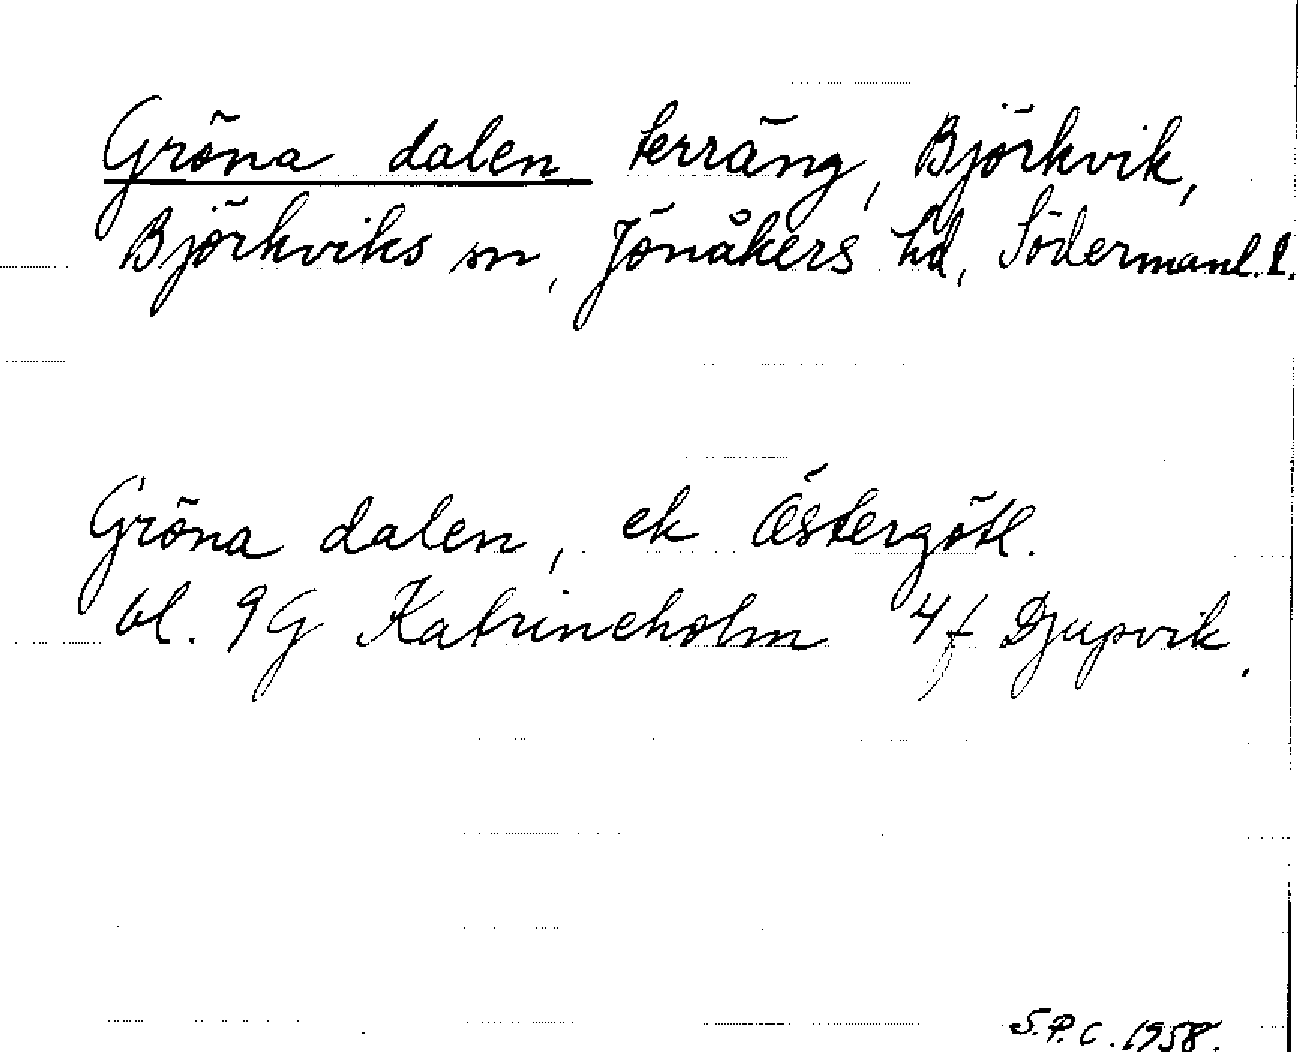 Gröna dalen terräng, Björkvik,
Björkviks sn, Jönåkers hd, Södermanl. l.
Gröna dalen, ek Östergötl.
bl. 9G Katrineholm 4f Djupvik.
S.P.C. 1958.